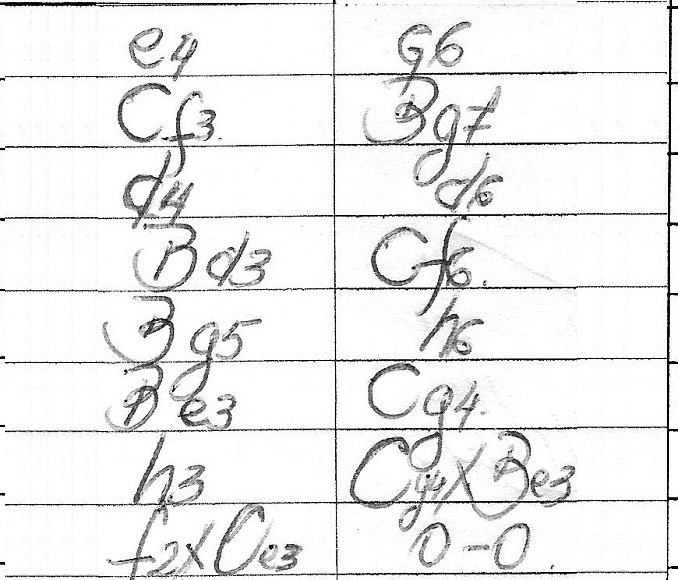 e4 g6
Cf3 Bg7
d4 d6
Bd3 Cf6.
Bg5 h6
Be3 Cg4.
h3 Cg4xBe3
f2xCe3 0-0.